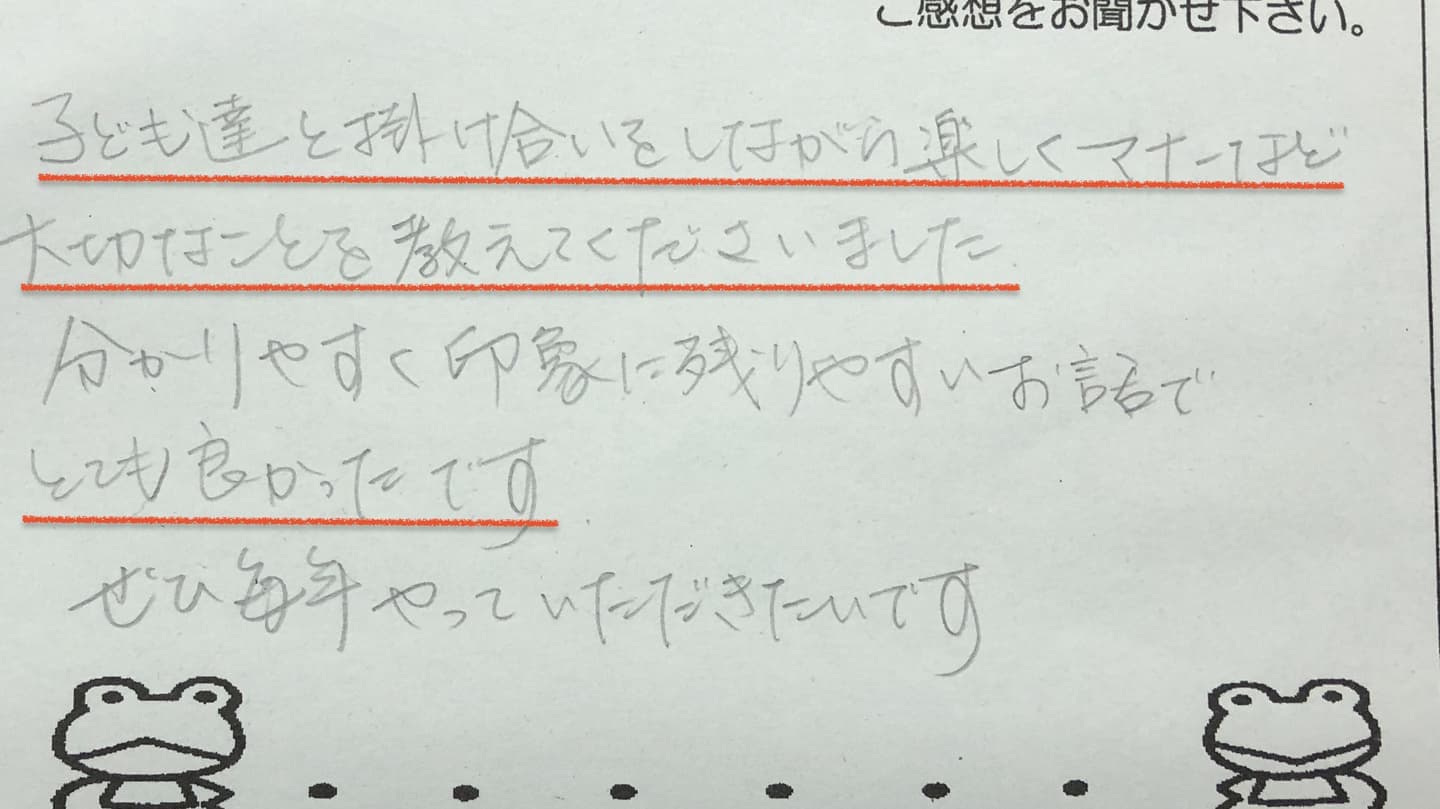 ご感想をお聞かせ下さい。
子ども達と掛け合いをしながら楽しくマナーなど
大切なことを教えてくださいました
分かりやすく印象に残りやすいお話で
とても良かったです
ぜひ毎年やっていただきたいです